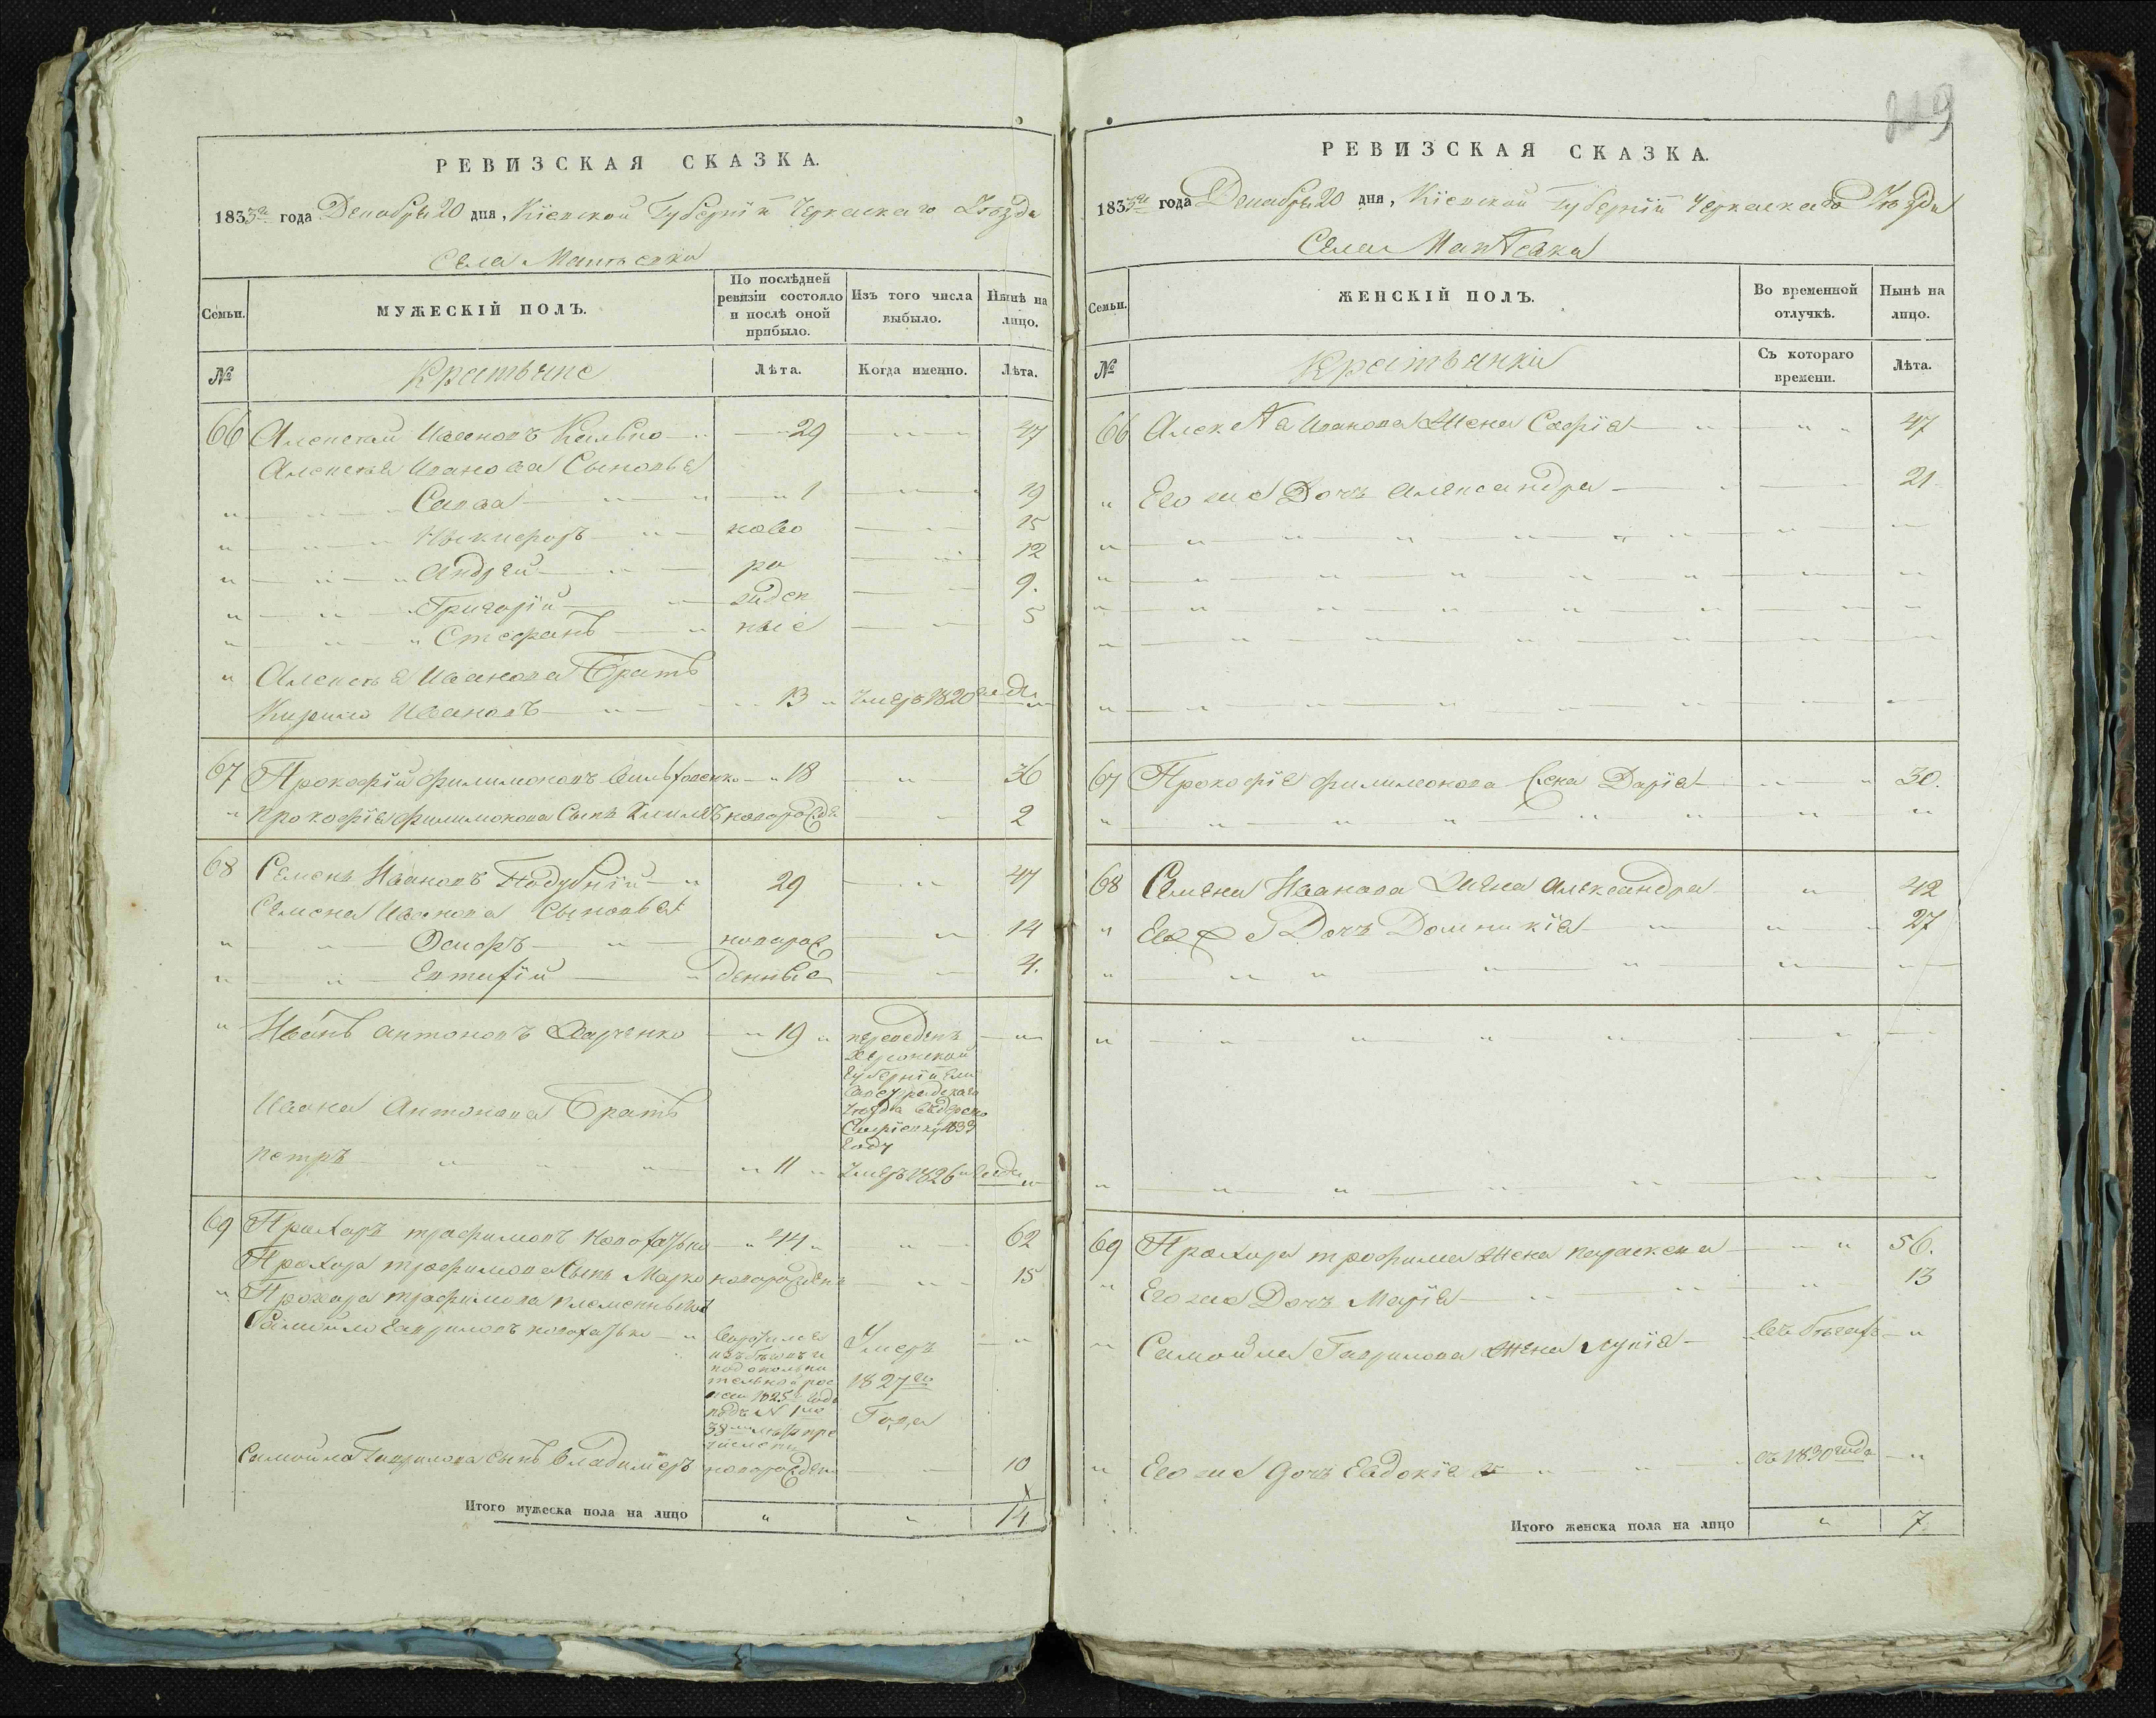 РЕВИЗСКАЯ СКАЗКА.
1833го года Декабря 20 дня, Кіевской Губерніи Черкаскаго Уѣзда
Села
Семьи.
МУЖЕСКІЙ ПОЛЪ.
По послѣдней ревизіи состояло и послѣ оной прибыло.
Изъ того числа выбыло.
Нынѣ на лицо.
№
Крестьяне
Лѣта.
Когда именно.
Лѣта.
66 Алексей Ивановъ 29 47
Алексея Иванова Сыновья
Савва 1 19
Никифоръ ново 15
Андрей ро 12
Григорій жден 9.
Стефанъ ные 5
Алексея Иванова Братъ
Кирило Ивановъ 13 Умеръ 1820 года
67 Прокофій Филимоновъ 18 36
Прокофія Филимонова Сынъ Климъ новорожде 2
68 Семенъ Ивановъ Подубній 29 47
Семена Иванова Сыновья
Осифъ новорож 14
Евтифій денные 4.
Иванъ Антоновъ Харченко 19 переведенъ
Херсонской
Губерніи Ели
саветградскаго
Уѣзда
1833
Году
Ивана Антонова Братъ
Петръ 11 Умеръ 1826 года
69 Прохоръ Трофимовъ 44 62
Прохора Трофимова Сынъ Марко новорожден 15
Прохора Трофимова племенникъ
Самойло Гавриловъ
Умеръ
1827го
Года
1825 года
подъ №
38
Самойла Гаврилова сынъ Владимеръ новорожден 10
Итого мужеска пола на лицо " " 14
229
РЕВИЗСКАЯ СКАЗКА.
1833го года Декабря 20 дня, Кіевской Губерніи Черкаскаго Уѣзда
Села
Семьи.
ЖЕНСКІЙ ПОЛЪ.
Во временной отлучкѣ.
Нынѣ на лицо.
№
Крестьянки
Съ котораго времени.
Лѣта.
66 Алексея Иванова Жена Софія 47
Его же Дочь Александра 21
67 Прокофія Филимонова Жена Дарія 30.
68 Семена Иванова Жена Александра 42
Его же Дочь Домникія 27
69 Прохора Трофима Жена Параскева 56.
Его же Дочь Марія 13
Самойла Гаврилова Жена въ бѣгахъ
Его же дочь Евдокія съ 1830 года
Итого женска пола на лицо " 7